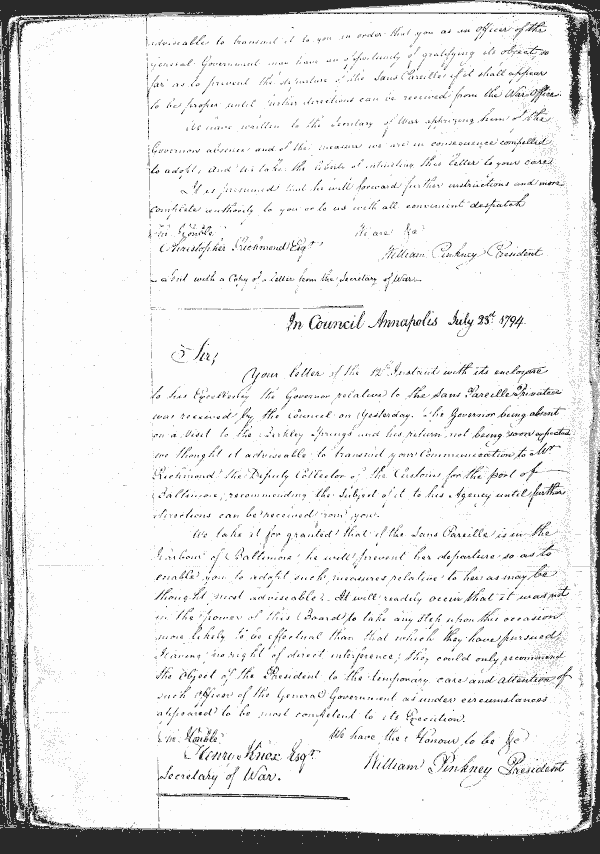 adviseable to transmit it to you in order that you as an Officer of the
general Government may have an opportunity of gratifying its object, so
far as to prevent the departure of the Sans Pareille if it shall appear
to be proper until further directions can be received from the War Office.
We have written to the Secretary of War apprizing him of the
Governors absence and of the measure we are in consequence compelled
to adopt, and we take the liberty of intrusting this letter to your care
It is presumed that he will forward further instructions and more
complete authority to you or to us with all convenient despatch
We are &c
Honble
Christopher Richmond Esqr
William Pinkney President
Sent with a Copy of a letter from the Secretary of War
In Council Annapolis July 23d 1794
Sir,
Your letter of the 12th Instant with its enclosure
to his Excellency the Governor relative to the Sans Pareille Privateer
was received by the Council on Yesterday. The Governor being absent
on a visit to the Berkley Springs and his return not being soon expected
we thought it adviseable to transmit your Communication to Mr
Richmond the Deputy Collector of the Customs for the port of
Baltimore, recommending the subject of it to his Agency until further
directions can be received from you.
We take it for granted that if the Sans Pareille is in the
Harbour of Baltimore he will prevent her departure so as to
enable you to adopt such measures relative to her as may be
thought most adviseable. It will readily occur that it was not
in the power of this Board to take any step upon this occasion
more likely to be effectual than that which they have pursued
Having no right of direct interference, they could only recommend
the object of the President to the temporary care and attention of
such officer of the General Government as under circumstances
appeared to be most competent to its Execution.
We have the Honour to be &c
Honble
Henry Knox Esqr
William Pinkney President
Secretary of War.